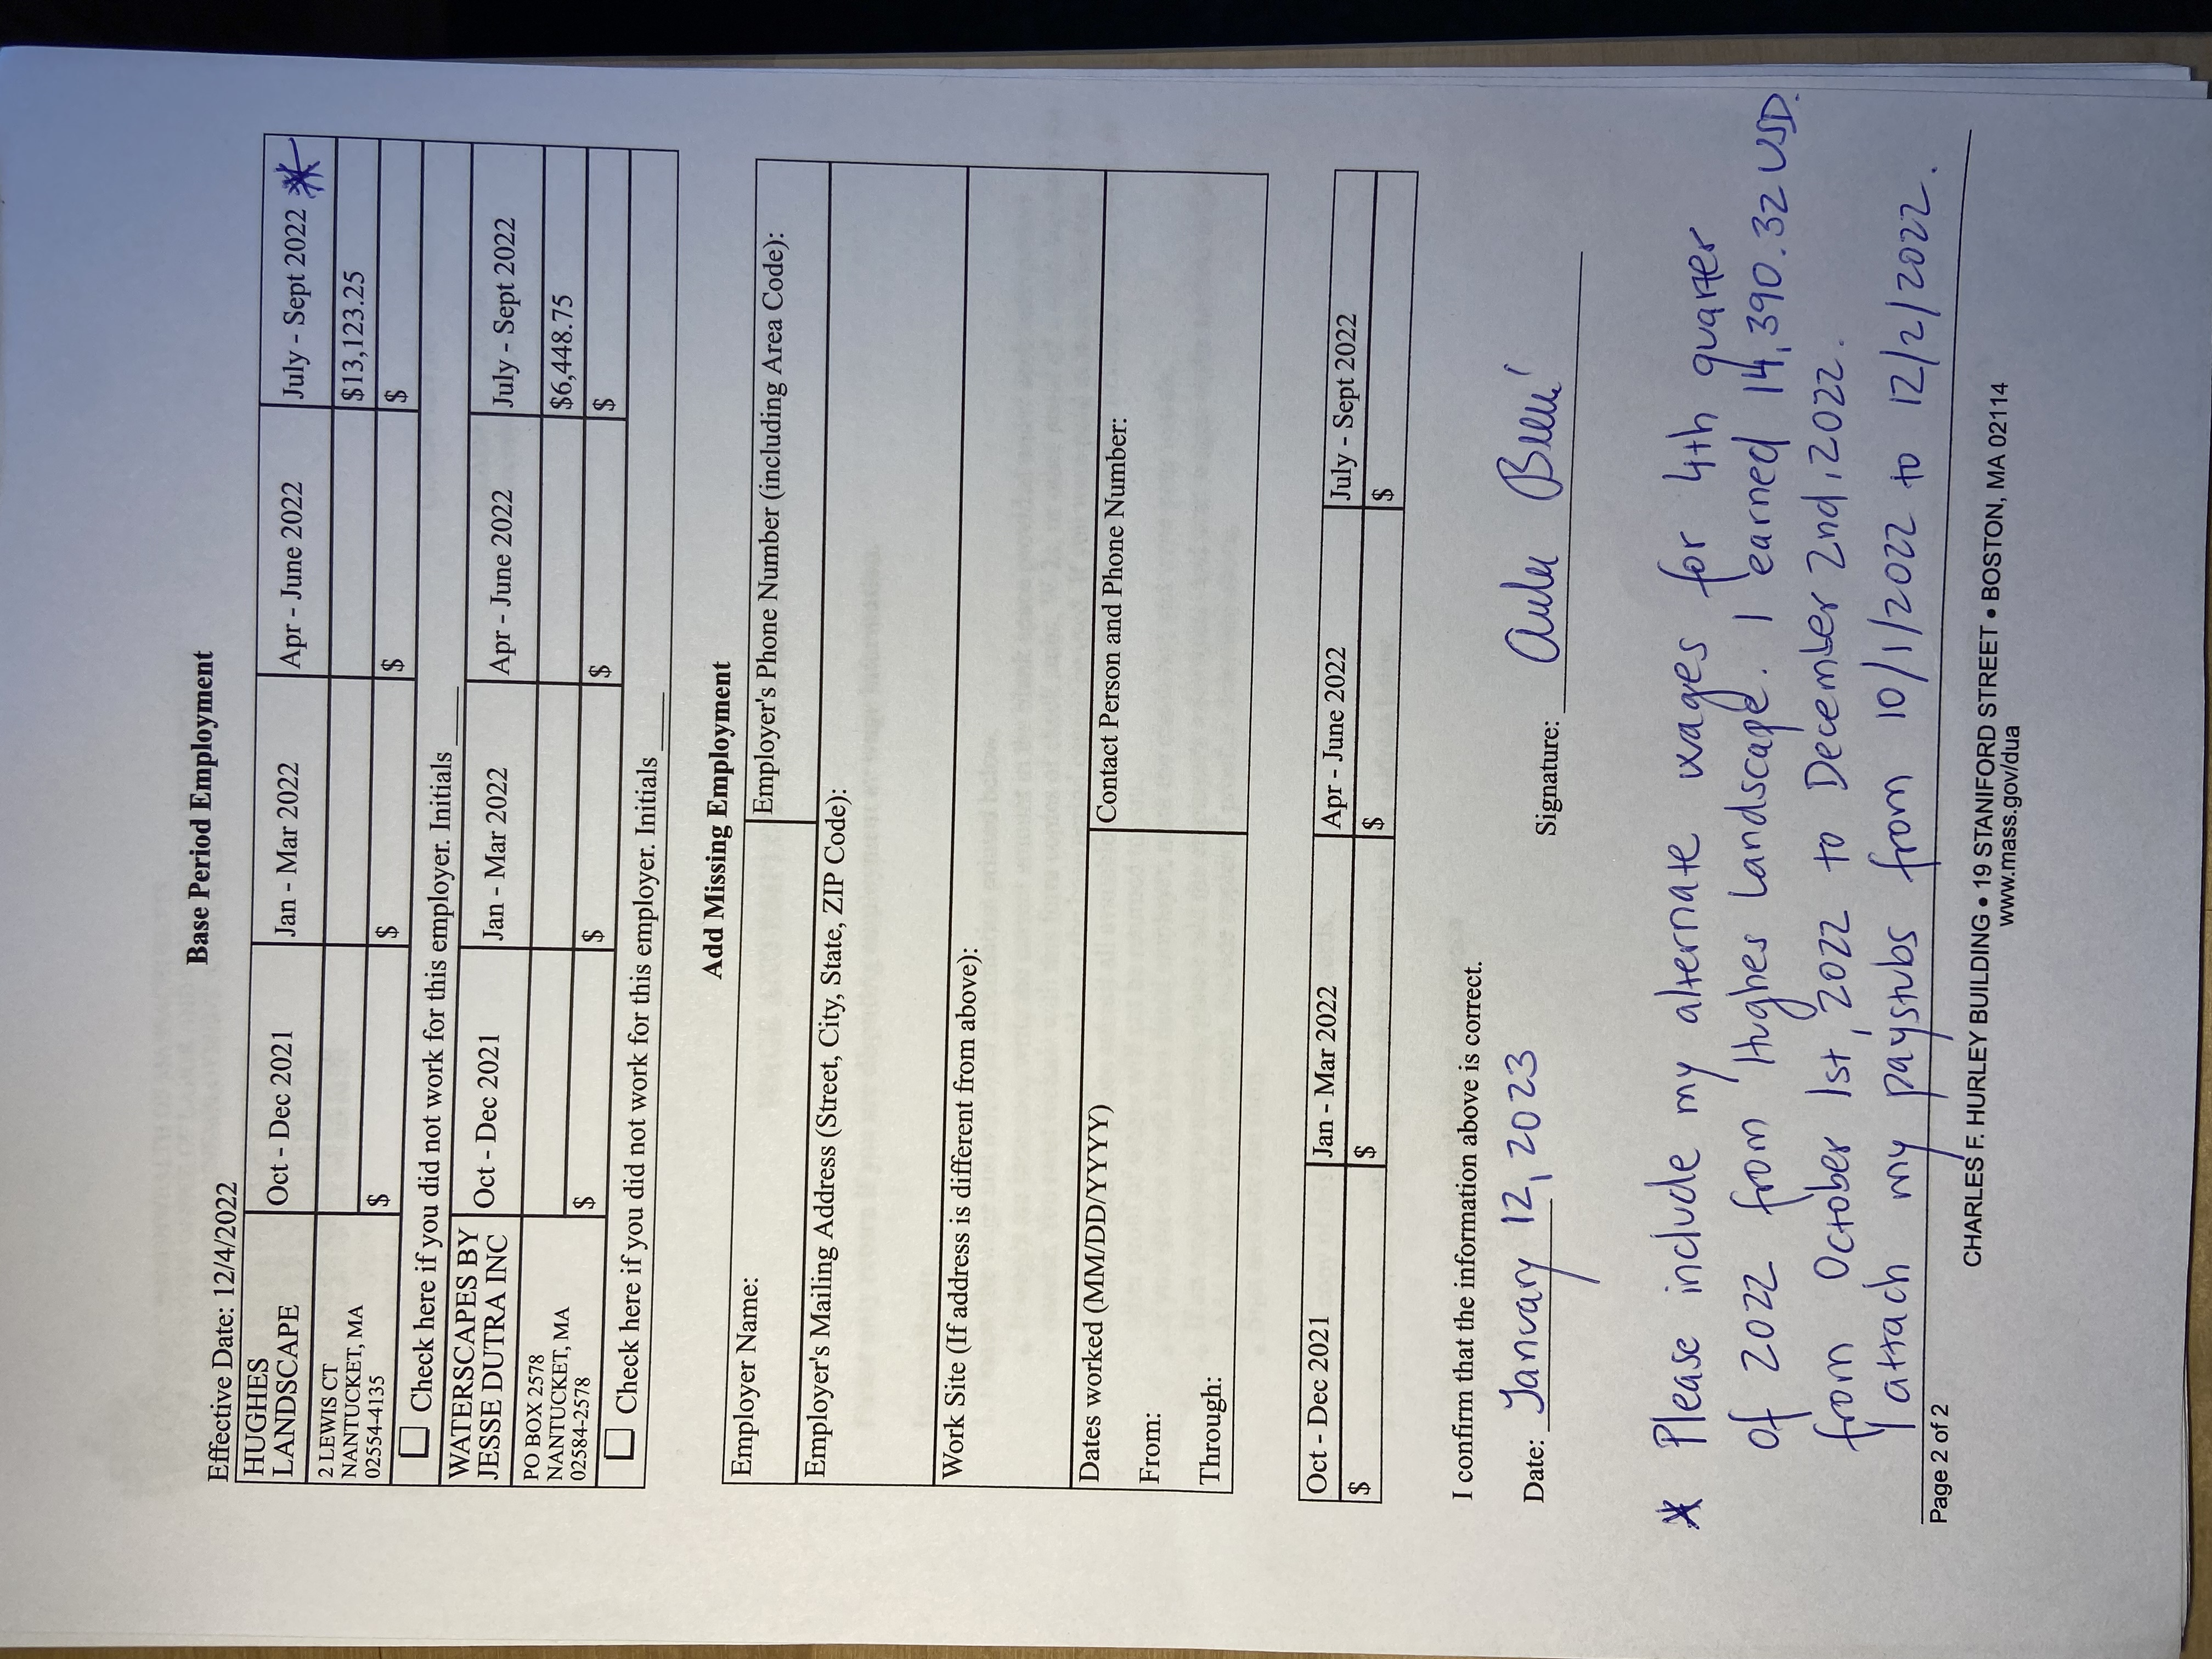 Base Period Employment
Effective Date: 12/4/2022
HUGHES
LANDSCAPE
Oct - Dec 2021
Jan - Mar 2022
Apr - June 2022
July - Sept 2022 *
2 LEWIS CT
NANTUCKET, MA
02554-4135
$13,123.25
$
$
$
$
Check here if you did not work for this employer. Initials ____
WATERSCAPES BY
JESSE DUTRA INC
Oct - Dec 2021
Jan - Mar 2022
Apr - June 2022
July - Sept 2022
PO BOX 2578
NANTUCKET, MA
02584-2578
$6,448.75
$
$
$
$
Check here if you did not work for this employer. Initials ____
Add Missing Employment
Employer Name:
Employer's Phone Number (including Area Code):
Employer's Mailing Address (Street, City, State, ZIP Code):
Work Site (If address is different from above):
Dates worked (MM/DD/YYYY)
From:
Through:
Contact Person and Phone Number:
Oct - Dec 2021
Jan - Mar 2022
Apr - June 2022
July - Sept 2022
$
$
$
$
I confirm that the information above is correct.
Date: January 12, 2023
Signature:
* Please include my alternate wages for 4th quarter
of 2022 from Hughes Landscape. I earned 14,390.32 USD.
from October 1st, 2022 to December 2nd, 2022.
I attach my paystubs from 10/1/2022 to 12/2/2022.
Page 2 of 2
CHARLES F. HURLEY BUILDING • 19 STANIFORD STREET • BOSTON, MA 02114
www.mass.gov/dua